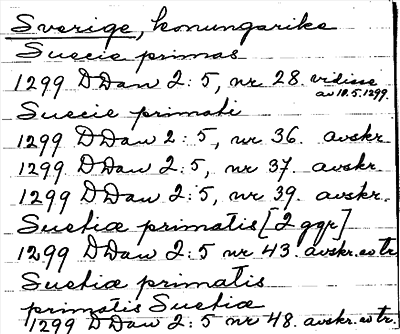 Sverige, konungarike
Suecie primas
1299 DDan 2:5, nr 28. vidisse
av 10.5.1299.
Suecie primati
1299 DDan 2:5, nr 36. avskr.
1299 DDan 2:5, nr 37. avskr.
1299 DDan 2:5, nr 39. avskr.
Suetiæ primatis [2 ggr]
1299 DDan 2:5 nr 43. avskr. av tr.
Suetiæ primatis
primatis Suetiæ
1299 DDan 2:5 nr 48. avskr. av tr.